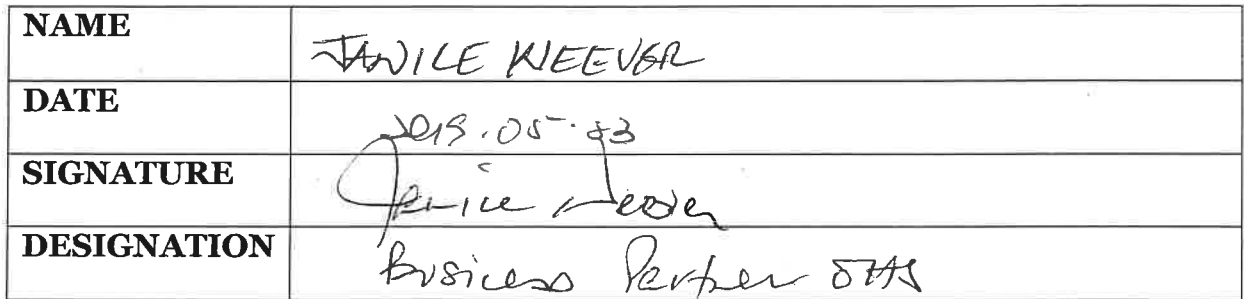 NAME JANICE KLEEVER
DATE 2019.05.23
SIGNATURE Janice
DESIGNATION Business Partner